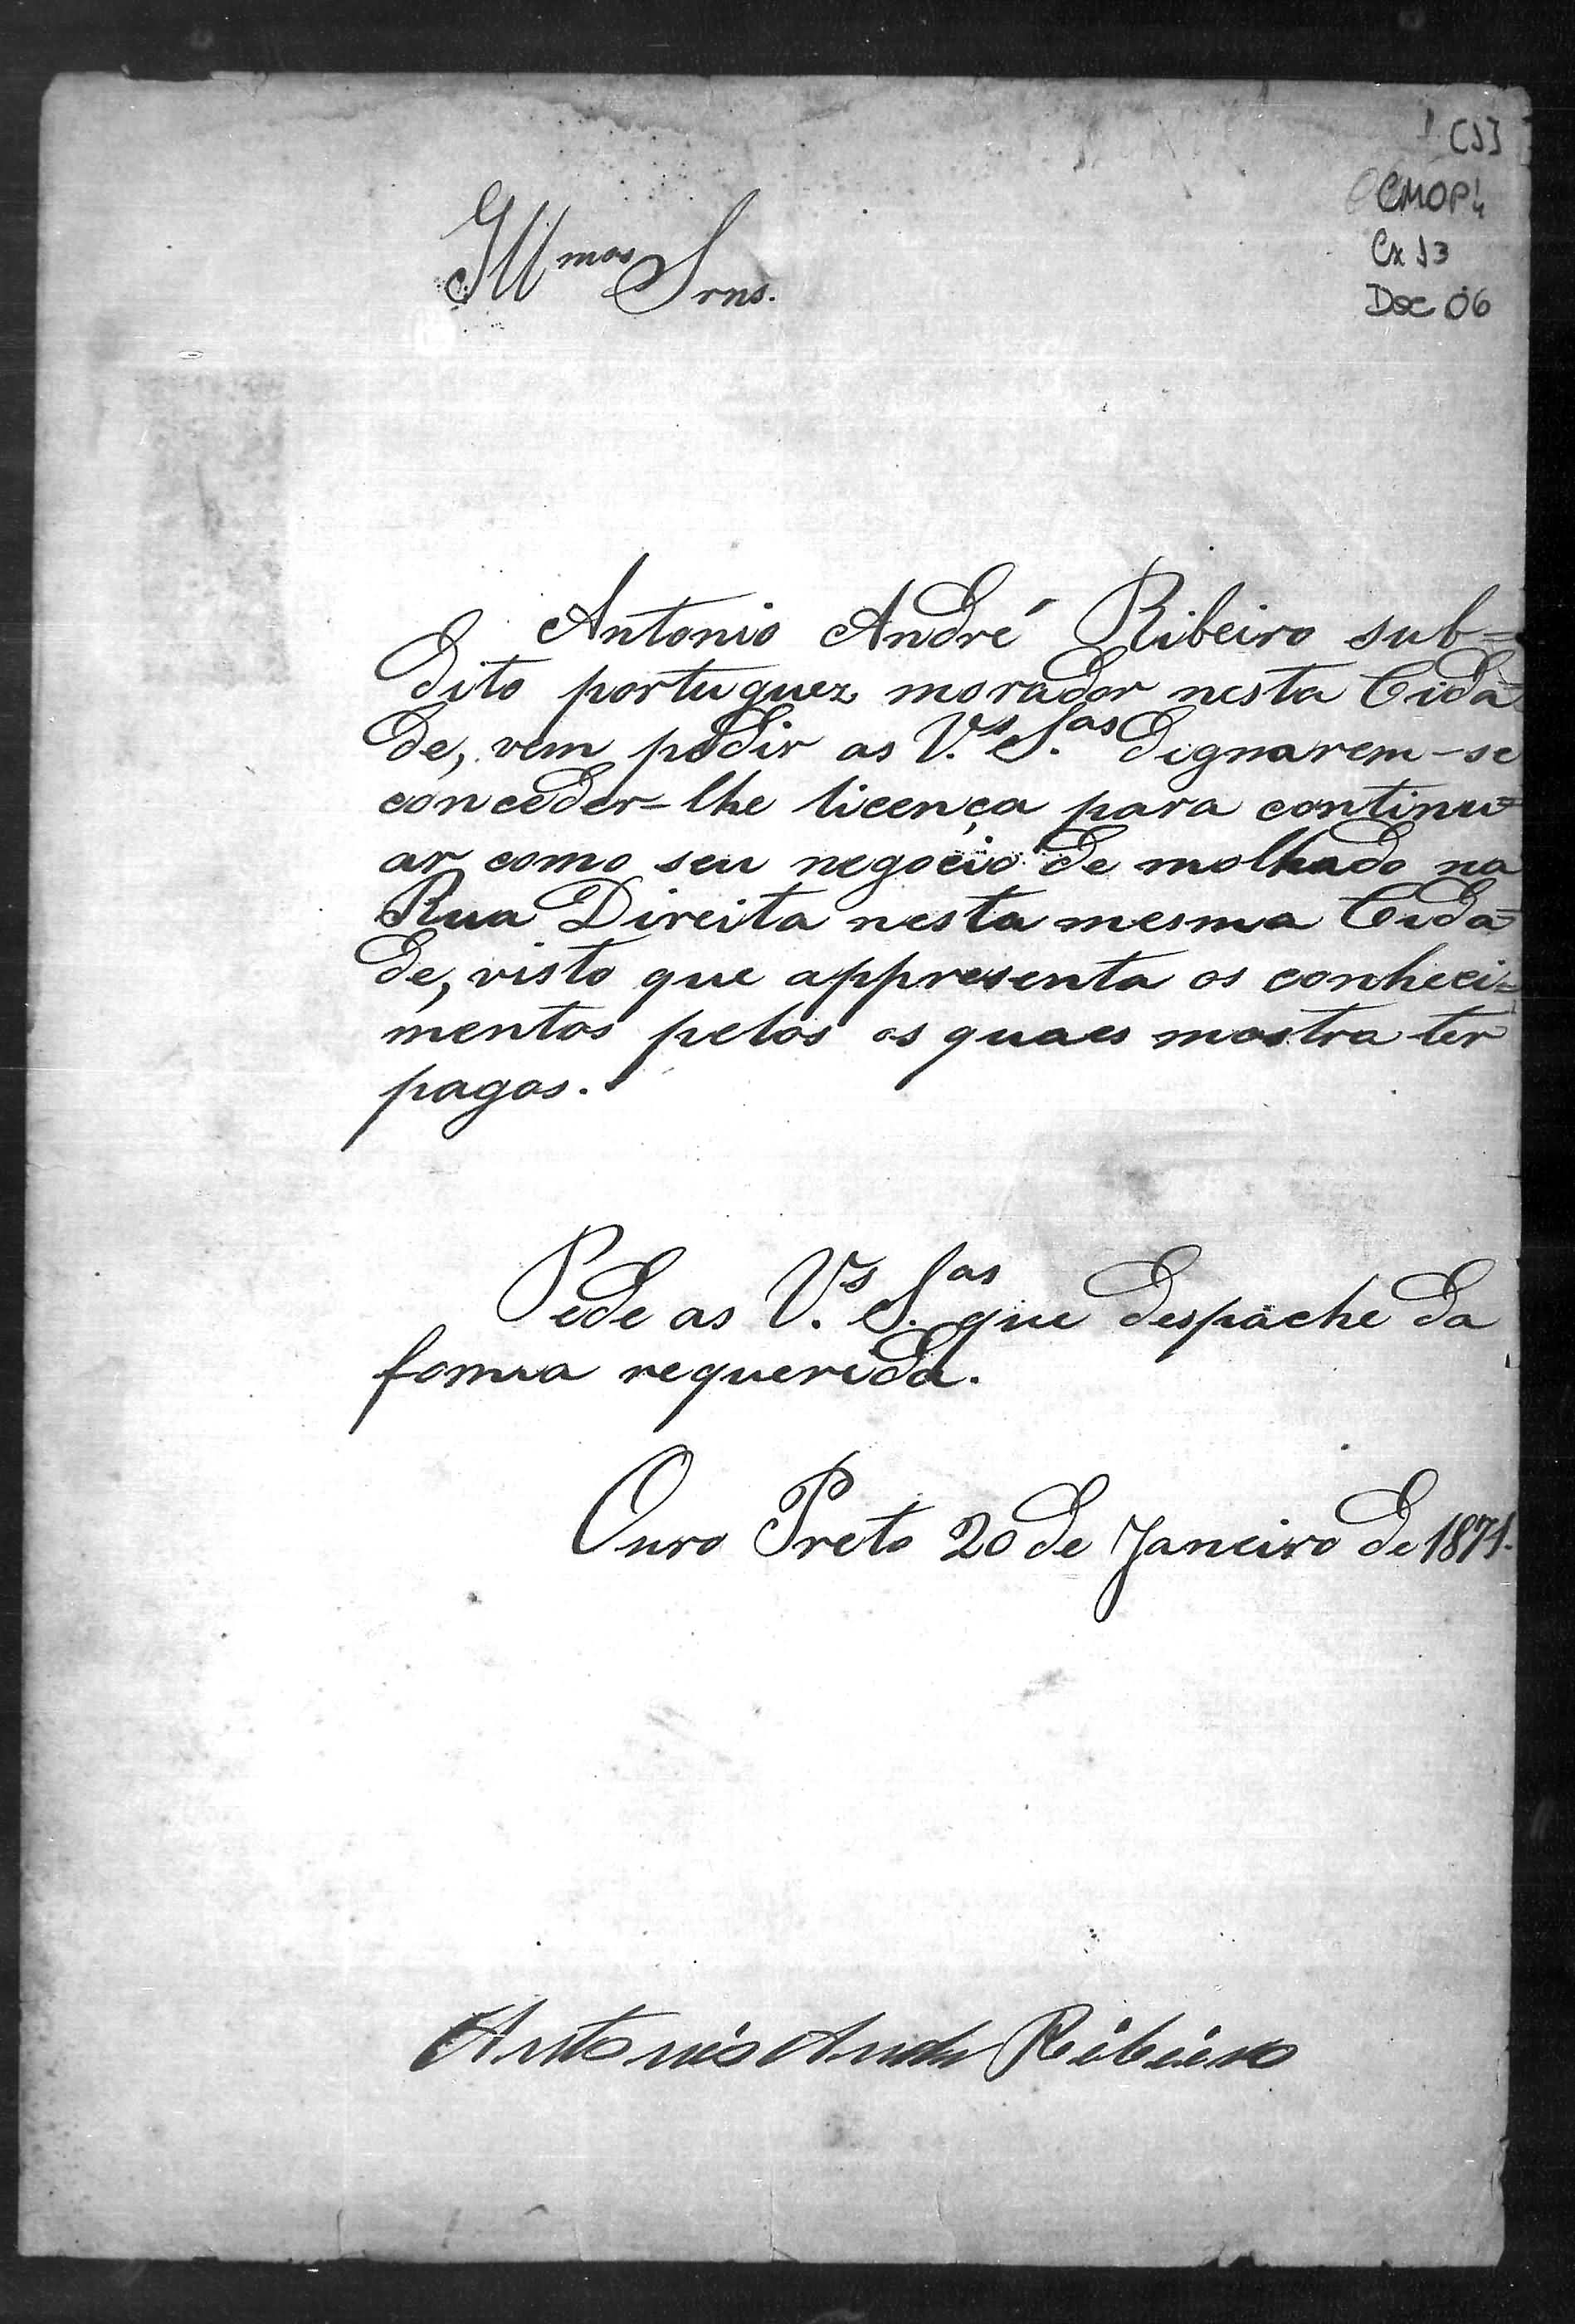 [1]
CMOP
Cx 13
Doc 06
Illmos Srns.
Antonio André Ribeiro sub=
dito portuguez morador nesta Cida=
de, vem pedir as V.s S.as dignarem-se
conceder-lhe licença para continu=
ar como seu negocio de molhado na
Rua Direita nesta mesma Cida=
de, visto que appresenta os conheci=
mentos pelos os quaes mostra ter
pagos.
Pede as V.s S.as que despache da
forma requerida.
Ouro Preto 20 de Janeiro de 1871.
Antonio Andre Ribeiro